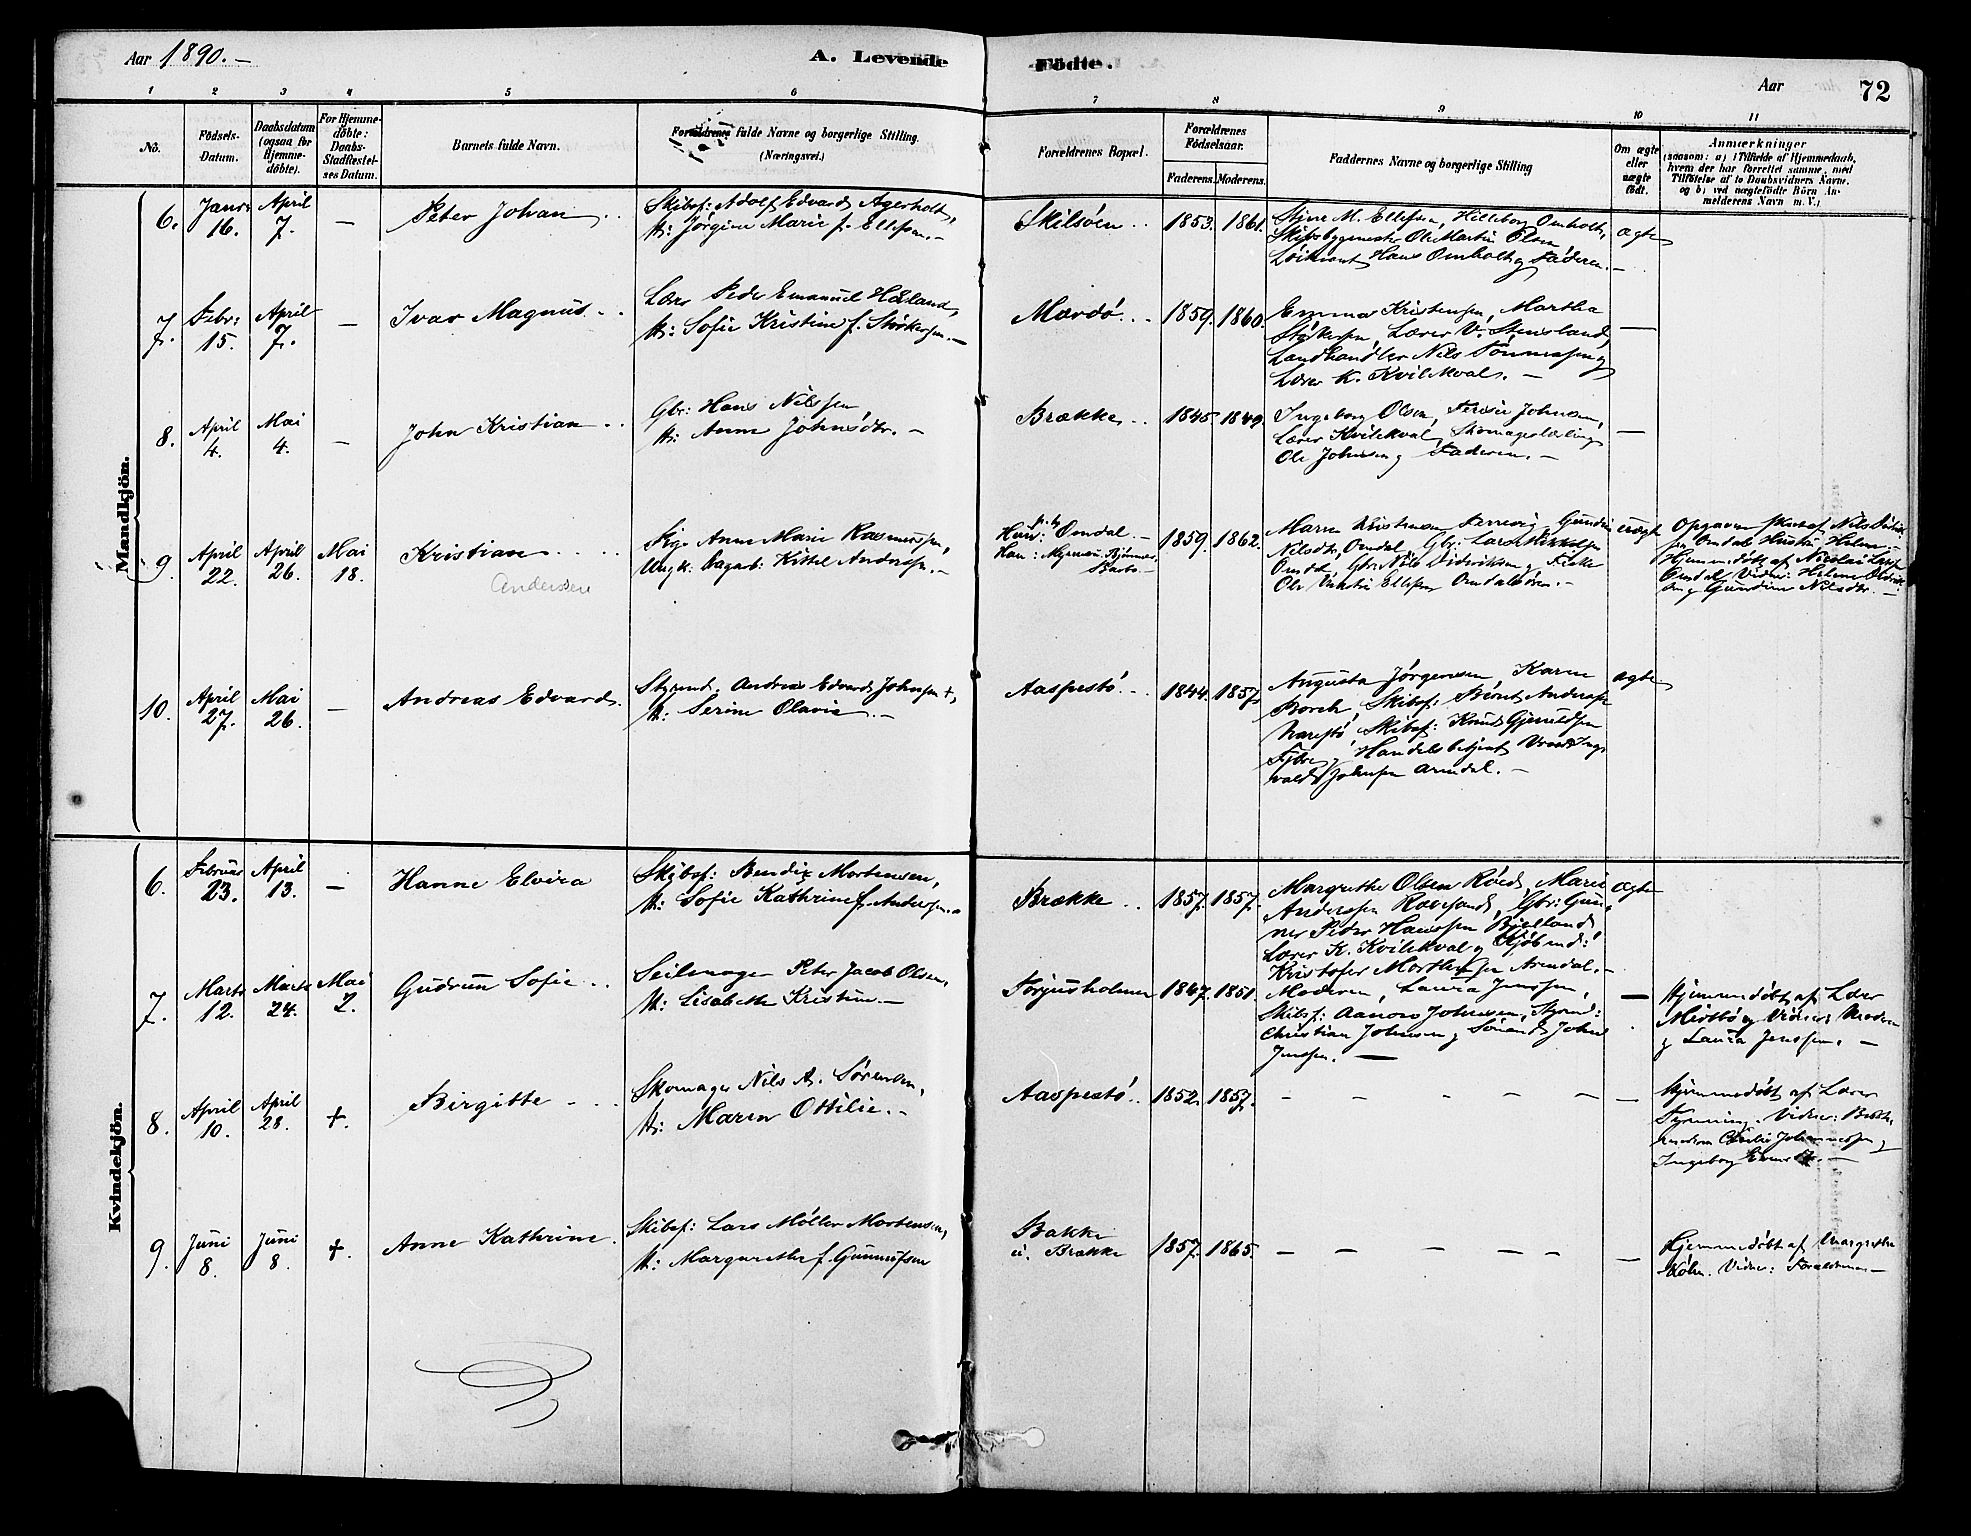 Aar 1890. —
A. Levende Födte.
Aar
72
1 2 3 4 5 6 7 8 9 10 11
Nô.
Födsels-
Datum.
Daabsdatum
(ogsaa for
Hjemme-
döbte).
For Hjemme-
döbte:
Daabs-
Stadfæstel-
ses Datum.
Barnets fulde Navn.
Forældrenes fulde Navne og borgerlige Stilling.
(Næringsvei.)
Forældrenes Bopæl.
Forældrenes
Födselsaar.
Faderens. Moderens.
Faddernes Navne og borgerlige Stilling
Om ægte
eller
uægte
födt.
Anmærkninger
(saasom: a) i Tilfælde af Hjemmedaab,
hvem der har forrettet samme, med
Tilföielse af to Daabsvidners Navne,
og b) ved uægtefödte Börn An-
melderens Navn m. V.)
Mandkjön.
6.
Janr:
16.
April
7.
—
Peter Johan
Skibsf: Adolf Edvard Agerholt,
H: Jørgine Marie f. Ellefsen. —
Skilsöen
1853. 1861.
Stine M. Ellefsen, Hilleborg Omholt,
Skibsbygmester Ole Martin Olsen
Hans Omholt og Faderen. —
ægte
7.
Febr:
15.
April
7.
—
Ivar Magnus
Lærer Peder Emanuel
H: Sofie Kristine f. Størkersen. —
Mærdö
1859. 1860.
Emma Kristensen, Martha
Størkersen, Lærer V. Stensland,
Landhandler Nils Tönnessen og
Lærer K. Kvilekval. —
—
8.
April
4.
Mai
4.
—
John Kristian
Gbr: Hans Nilssen
H: Anne Johnsdtr. —
Brække
1845. 1849.
Ingeborg Olsen, Johnsen,
Lærer Kvilekval, Skomagerlærling
Ole Johnsen og Faderen. —
—
9.
April
22.
April
26.
Mai
18.
Kristian
Andersen
Pige Anne Marie Rasmussen,
Ungk. Kittel Anderssen. —
Hun: Omdal —
Han:
Barbo —
1859. 1862.
Maren Kristensen Gundine
Nilsdtr. Omdal, Gbr: Lars
Omdal, Gbr: Nils Didriksen og
Ole Ellefsen Omdalsören. —
uægte
Opgaven af Nils
Omdals Hustru Helene
Hjemmedöbt af Nicolai Larsen
Omdal. Vidner: Helene
og Gundine Nilsdtr. —
10.
April
27.
Mai
26.
—
Andreas Edvard.
Styrmd. Andreas Edvard Johnsen +,
H: Serine Olavie. —
Aaspestö
1844. 1857.
Augusta Jørgensen, Karen
Skibsf: Anderssen
Narestö, Skibsf: Knud
Handelsbetjent
Johnsen Arendal. —
ægte
Kvindekjön.
6.
Februar
23.
April
13.
—
Hanne Elvira
Skibsf: Bendix Mortensen,
H: Sofie Kathrine f. Anderssen.
Brække
1857. 1857.
Margrethe Olsen Røed, Marie
Anderssen Revesand, Gbr: Gun-
ner Peder Hanssen Bjelland
Lærer K. Kvilekval og
Kristofer Mortensen Arendal. —
ægte
7.
Marts
12.
Marts
24.
Mai
2.
Gudrun Sofie
Seilmager Peter Jacob Olsen,
H: Lisabeth Kristine —
Torjusholmen
1847. 1851.
Moderen, Laura Jenssen,
Skibsf: Aanon Johnsen, Styrmd:
Christian Johnsen og John
Jenssen. —
—
Hjemmedöbt af Lærer
Midtbö, Vidner: Moderen
og Laura Jenssen. —
8.
April
10.
April
28.
+.
Birgitte
Skomager Nils A. Sörensen,
H: Maren Ottilie. —
Aaspestö
1852. 1857.
— — — — —
—
Hjemmedöbt af Lærer
Vidner:
Johannessen og
Ingeborg
9.
Juni
8.
Juni
8.
+.
Anne Kathrine.
Skibsf: Lars Møller Mortensen,
H: Margarethe f. Gunnufsen
Bakke
u. Brække
1857. 1865.
— — — — — —
—
Hjemmedöbt af Margrethe
Vidner: Forældrene —